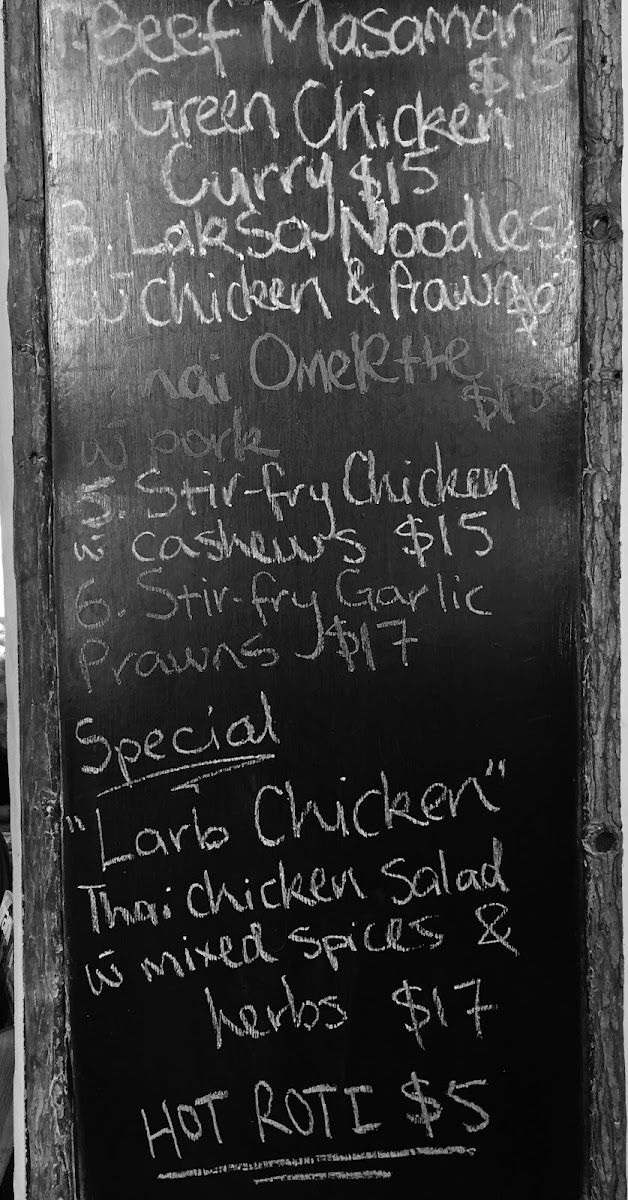 1. Beef Masaman
$15
2. Green Chicken
Curry $15
3. Laksa Noodles
w̄ chicken & Prawns
Thai Omelette
w̄ pork
5. Stir-fry Chicken
w̄ cashews $15
6. Stir-fry Garlic
Prawns $17
Special
"Larb Chicken"
Thai chicken Salad
w̄ mixed spices &
herbs $17
HOT ROTI $5